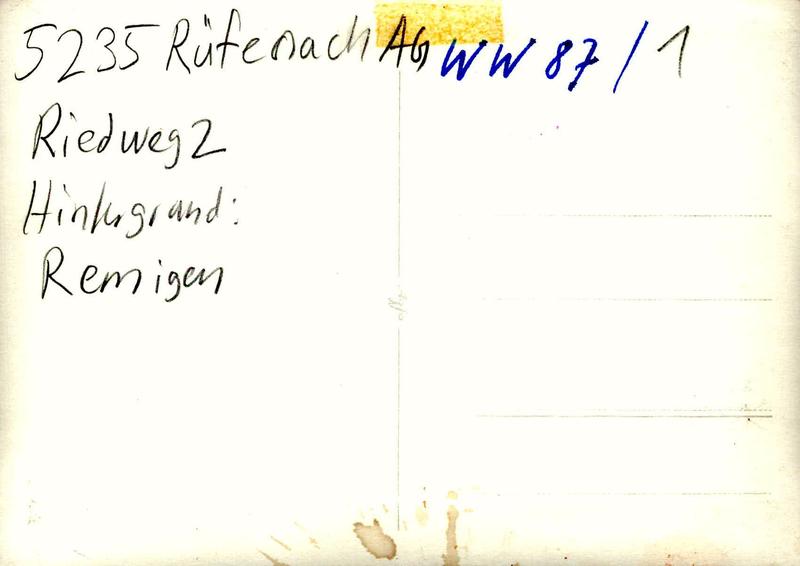 5235 Rüfenach AG WW 87/1
Riedweg 2
Hintergrund:
Remigen